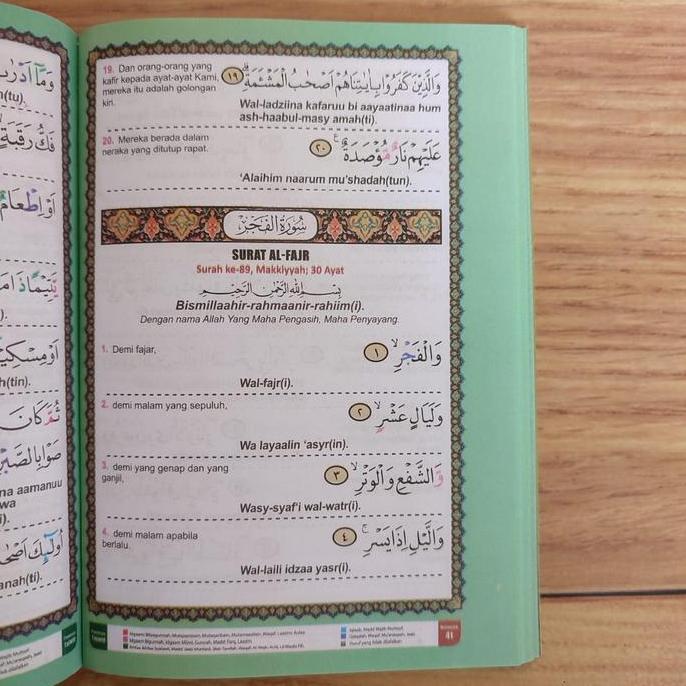 وَمَآ اَدْرٰ
(tu).
فَكُّ رَقَبَةٍ
اَوْ اِطْعَامٌ
يَّتِيْمًا ذَا مَ
).
اَوْ مِسْكِيْ
h(tin).
ثُمَّ كَانَ
صَوْا بِالصَّبْرِ
na aamanuu
wa
).
اُولٰۤىِٕكَ اَصْحٰ
anah(ti).
19. Dan orang-orang yang
kafir kepada ayat-ayat Kami,
mereka itu adalah golongan
kiri.
وَالَّذِيْنَ كَفَرُوْا بِاٰيٰتِنَا هُمْ اَصْحٰبُ الْمَشْـَٔمَةِۗ ١٩
Wal-ladziina kafaruu bi aayaatinaa hum
ash-haabul-masy amah(ti).
20. Mereka berada dalam
neraka yang ditutup rapat.
عَلَيْهِمْ نَارٌ مُّؤْصَدَةٌ ٢٠
‘Alaihim naarum mu'shadah(tun).
سُوْرَةُ الْفَجْرِ
SURAT AL-FAJR
Surah ke-89, Makkiyyah; 30 Ayat
بِسْمِ اللّٰهِ الرَّحْمٰنِ الرَّحِيْمِ
Bismillaahir-rahmaanir-rahiim(i).
Dengan nama Allah Yang Maha Pengasih, Maha Penyayang.
1. Demi fajar,
وَالْفَجْرِۙ ١
Wal-fajr(i).
2. demi malam yang sepuluh,
وَلَيَالٍ عَشْرٍۙ ٢
Wa layaalin ‘asyr(in).
3. demi yang genap dan yang
ganjil,
وَّالشَّفْعِ وَالْوَتْرِۙ ٣
Wasy-syaf'i wal-watr(i).
4. demi malam apabila
berlalu.
وَالَّيْلِ اِذَا يَسْرِۚ ٤
Wal-laili idzaa yasr(i).
41